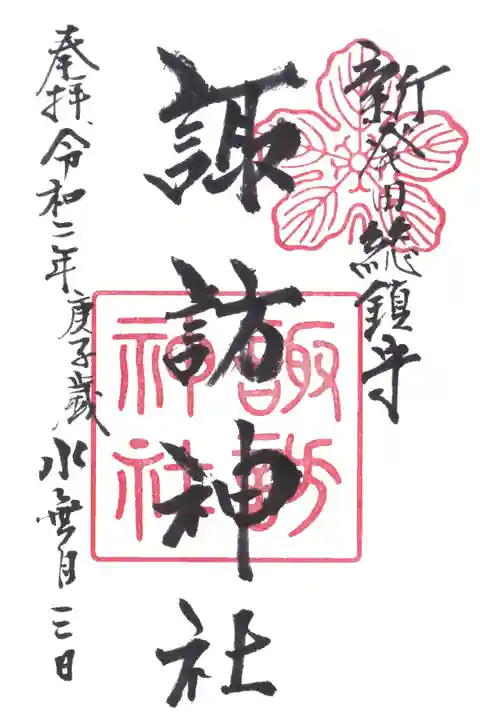 新発田総鎮守
諏訪神社
諏訪
神社
奉拝令和二年庚子歳水無月三日